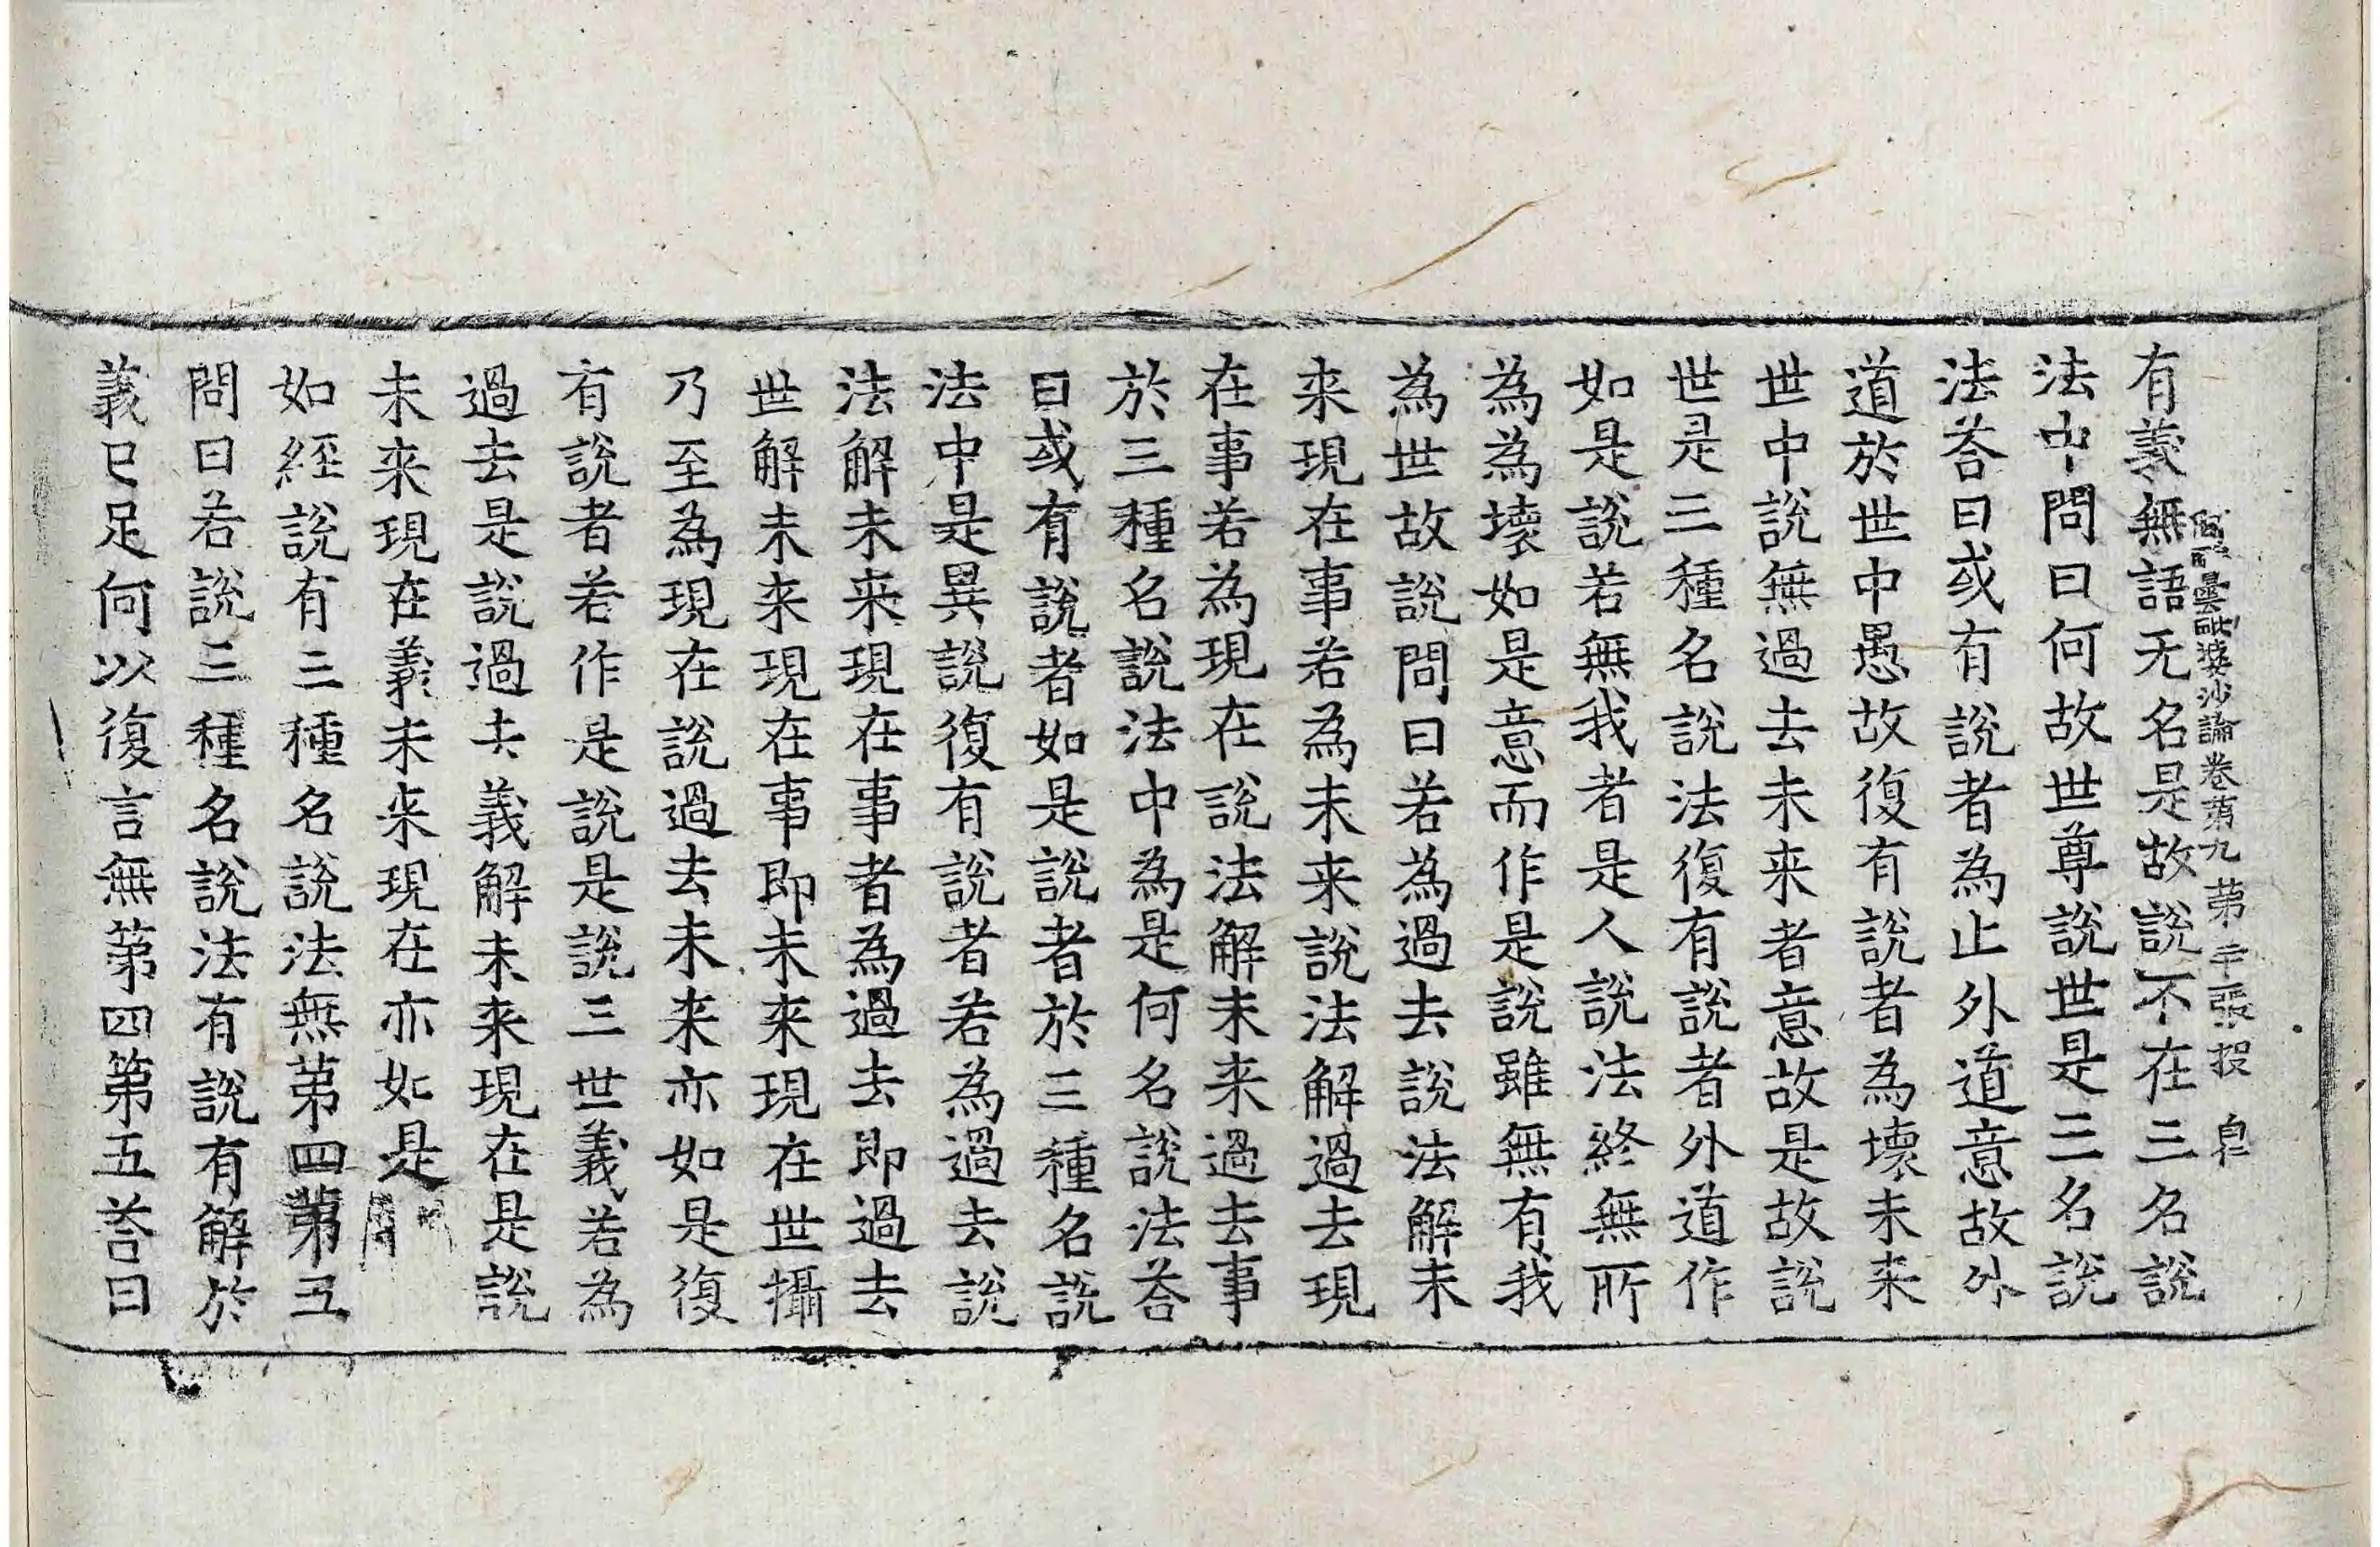 阿毗曇毗婆沙論卷第九 第二十張 投 皀
有義無語无名是故說不在三名說
法中問曰何故世尊說世是三名說
法荅曰或有說者為止外道意故外
道於世中愚故復有說者為壞未来
世中說無過去未来者意故是故說
世是三種名說法復有說者外道作
如是說若無我者是人說法終無所
為為壞如是意而作是說雖無有我
為世故說問曰若為過去說法解未
来現在事若為未来說法解過去現
在事若為現在說法解未来過去事
於三種名說法中為是何名說法荅
曰或有說者如是說者於三種名說
法中是異說復有說者若為過去說
法解未来現在事者為過去即過去
世解未来現在事即未来現在世攝
乃至為現在說過去未来亦如是復
有說者若作是說是說三世義若為
過去是說過去義解未来現在是說
未来現在義未来現在亦如是
如經說有三種名說法無第四第五
問曰若說三種名說法有說有解於
義已足何以復言無第四第五荅曰